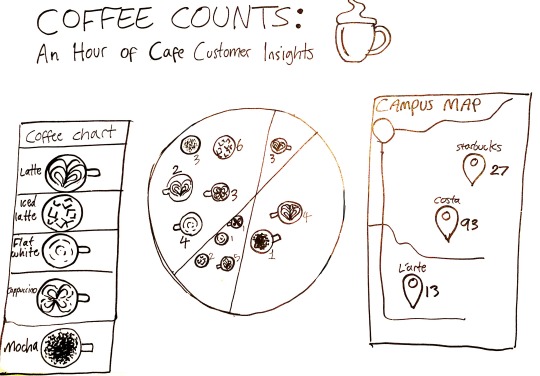 COFFEE COUNTS:
An Hour of Cafe Customer Insights
Coffee chart
Latte
Iced
latte
Flat
white
Cappuccino
Mocha
3
6
3
2
3
4
4
1
1
2
CAMPUS MAP
starbucks
27
costa
93
L'arte
13